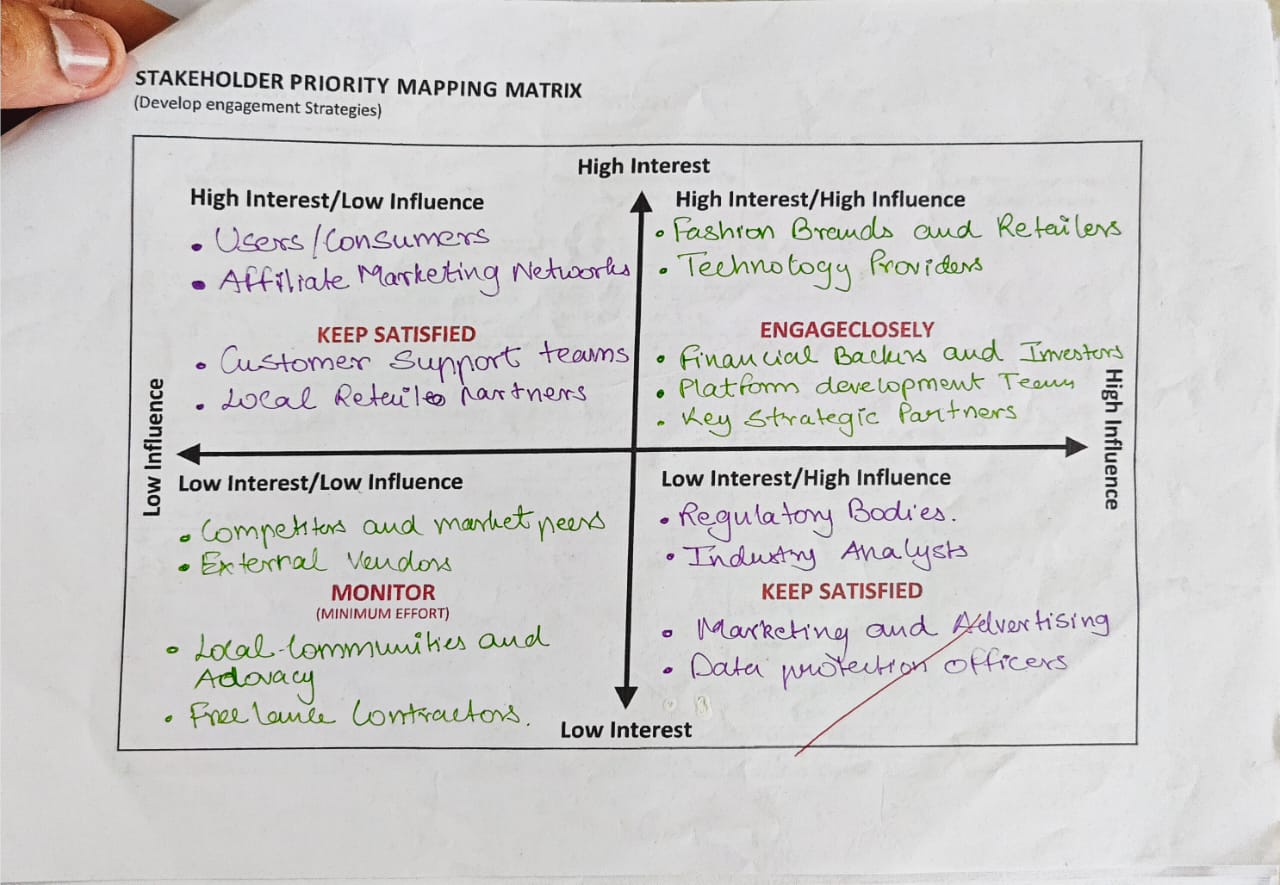 STAKEHOLDER PRIORITY MAPPING MATRIX
(Develop engagement Strategies)
High Interest
High Interest/Low Influence
• Users/Consumers
• Affiliate Marketing Networks
KEEP SATISFIED
• Customer Support teams
• Local Retail Partners
High Interest/High Influence
• Fashion Brands and Retailers
• Technology Providers
ENGAGECLOSELY
• Financial Backers and Investors
• Platform development Team
• Key Strategic Partners
Low Influence
High Influence
Low Interest/Low Influence
• Competitors and market peers
• External Vendors
MONITOR
(MINIMUM EFFORT)
• Local Communities and
Adovacy
• Free lance Contractors.
Low Interest/High Influence
• Regulatory Bodies.
• Industry Analysts
KEEP SATISFIED
• Marketing and Advertising
• Data protection officers
Low Interest